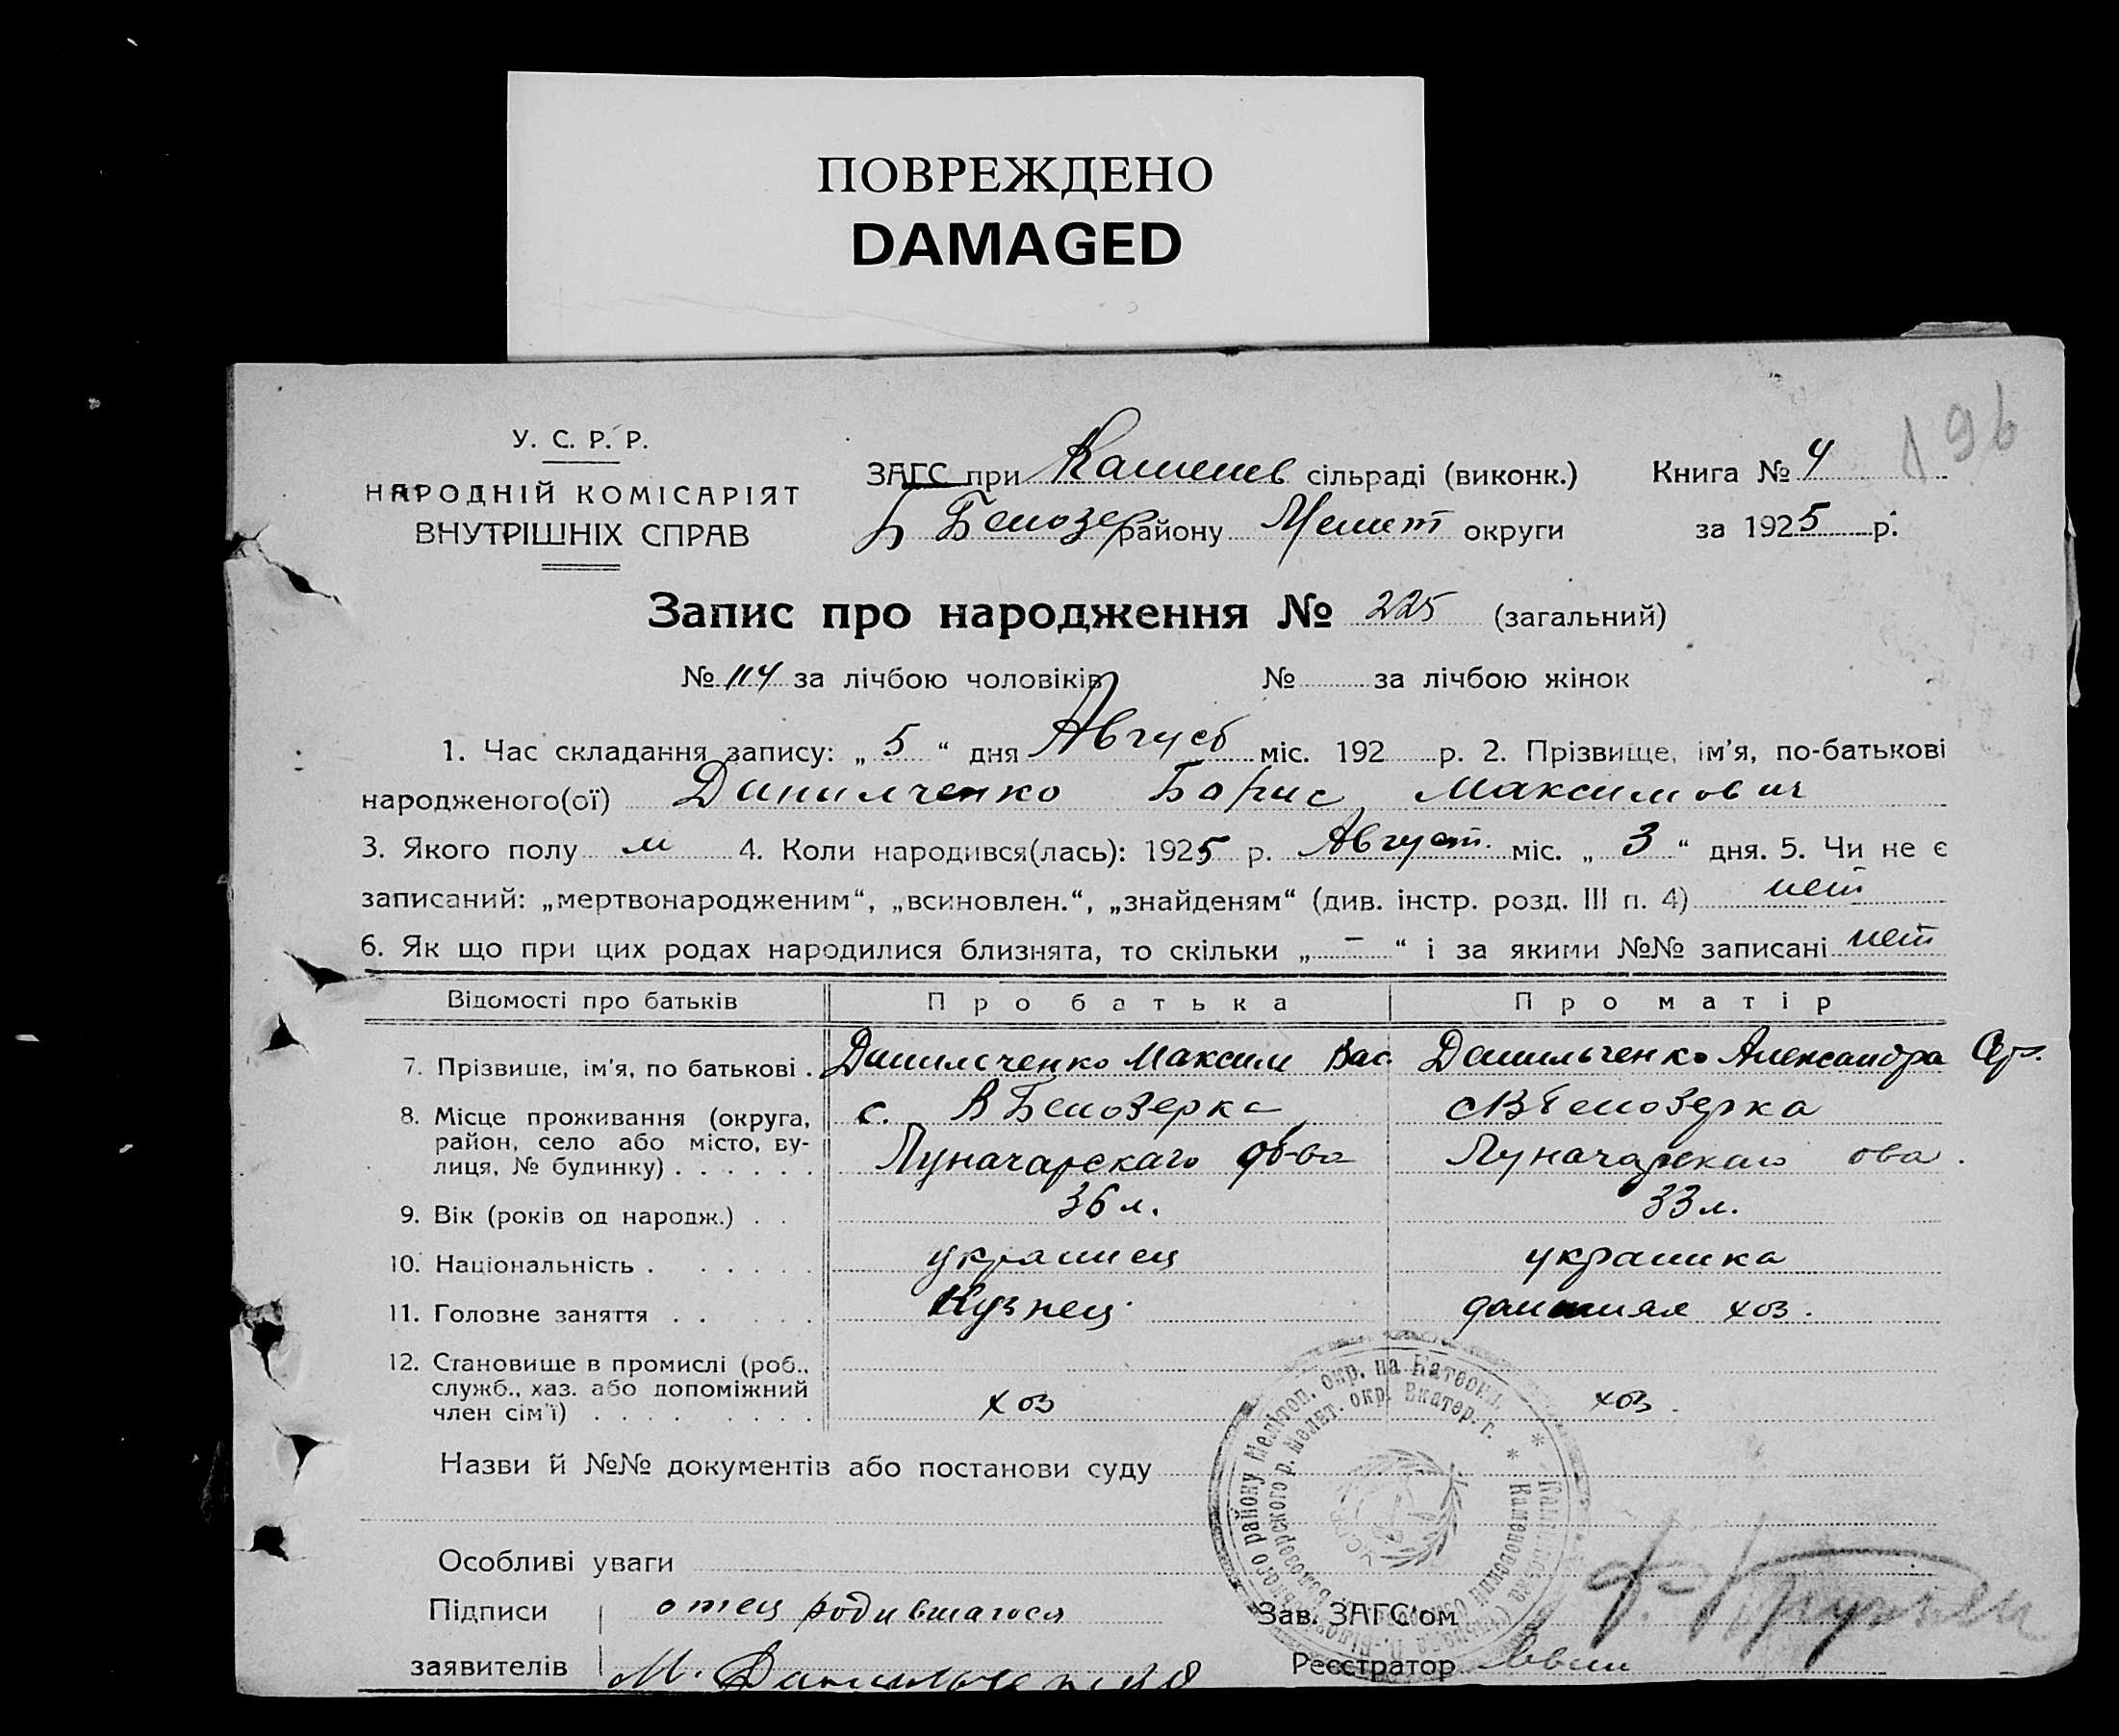 ПОВРЕЖДЕНО
DAMAGED
196
У. С. Р. Р.
НАРОДНІЙ КОМІСАРІЯТ
ВНУТРІШНІХ СПРАВ
ЗАГС при Каменев сільраді (виконк.) Книга № 4
Б Белозер району Мелит округи за 1925 р.
Запис про народження № 225 (загальний)
№ 114 за лічбою чоловіків № за лічбою жінок
1. Час складання запису: „ 5 “ дня Август міс. 192 р. 2. Прізвище, ім'я, по-батькові
народженого(ої) Данилченко Борис Максимович
3. Якого полу м 4. Коли народився(лась): 1925 р. Август міс. „ 3 “ дня. 5. Чи не є
записаний: „мертвонародженим“, „всиновлен.“, „знайденям“ (див. інстр. розд. III п. 4) нет
6. Як що при цих родах народилися близнята, то скільки „ – “ і за якими №№ записані нет
Відомості про батьків Про батька Про матір
7. Прізвище, ім'я, по батькові . Данильченко Максим Вас Данильченко Александра
8. Місце проживання (округа, с. В Белозерка с В Белозерка
район, село або місто, ву-
лиця, № будинку) . . . . . . Луначарскаго об-ва Луначарскаго ова .
9. Вік (років од народж.) . . 36 л. 33 л.
10. Національність . . . . . . украинец украинка
11. Головне заняття . . . . . Кузнец домашняя хоз.
12. Становище в промислі (роб.,
служб., хаз. або допоміжний
член сім'ї) . . . . . . . . хоз хоз.
Назви й №№ документів або постанови суду
Особливі уваги
Підписи отец родившагося Зав. ЗАГС'ом
заявителів М. Данильченко Реєстратор